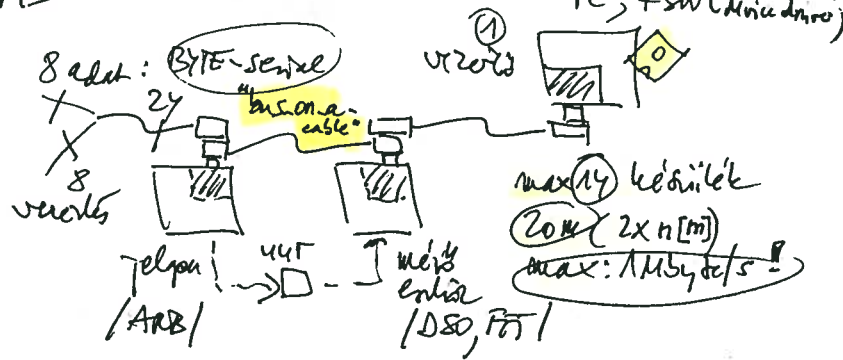 + SW (device driver)
8 adat: BYTE-serial
①
vezérlő
24
"bus on a-
cable"
8
vezérlés
max 14 készülék
20m (2xn[m])
max: 1Mbyte/s!
jelgen
/ARB/
mérő
eszköz
/DSO, FFT/